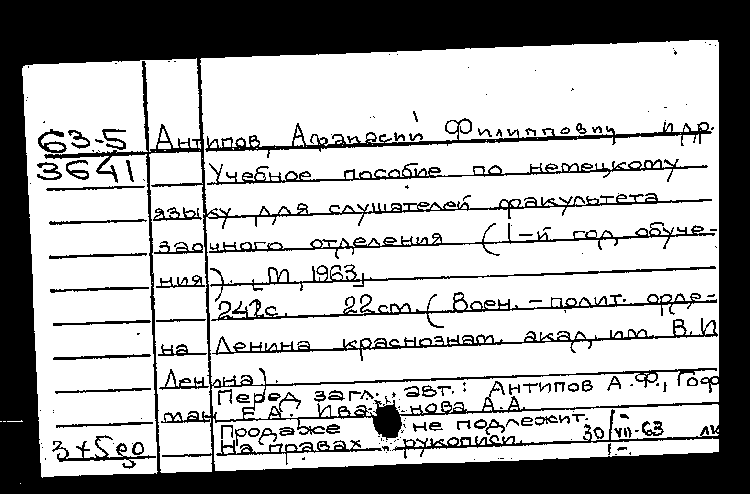 63-5
3641
Антипов, Афанасий Филиппович и др.
Учебное пособие по немецкому
языку для слушателей факультета
заочного отделения (1-й год обуче-
ния). [М., 1963]
242с. 22см. (Воен.-полит. орде-
на Ленина краснознам. акад. им. В.И
Ленина).
Перед загл. авт.: Антипов А.Ф., Гоф
ман Е.А. Иванова А.А.
Продаже не подлежит.
На правах рукописи. 30/VII-63